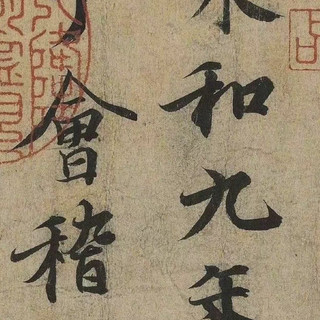 永和九年
會稽